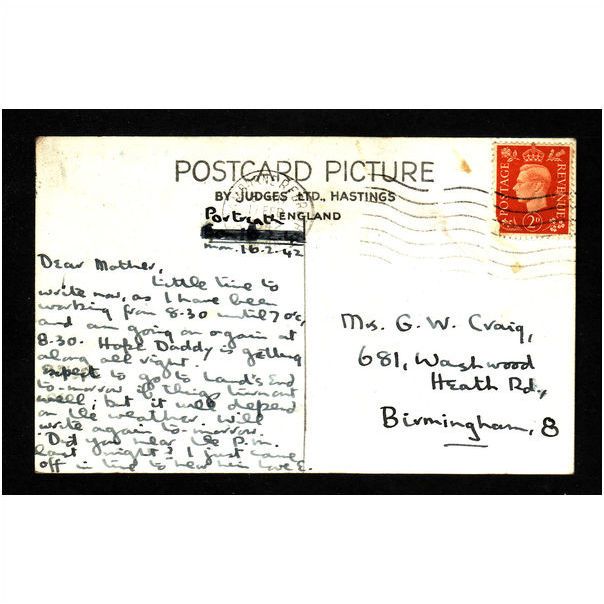 POSTCARD PICTURE
BY JUDGES LTD., HASTINGS
ENGLAND
POSTAGE REVENUE
2D
Portreath
Mon. 16-2-42
Dear Mother,
Little time to
write now, as I have been
working from 8-30 until 7 o'c,
and am going on again at
8.30. Hope Daddy is getting
along all right.
Expect to go to Land's End
to-morrow if things turn out
well; but it will depend
on the weather. Will
write again to-morrow.
Did you hear the P.M.
last night? I just came
off in time to hear him Love E.
Mrs. G. W. Craig,
681, Washwood
Heath Rd.,
Birmingham, 8